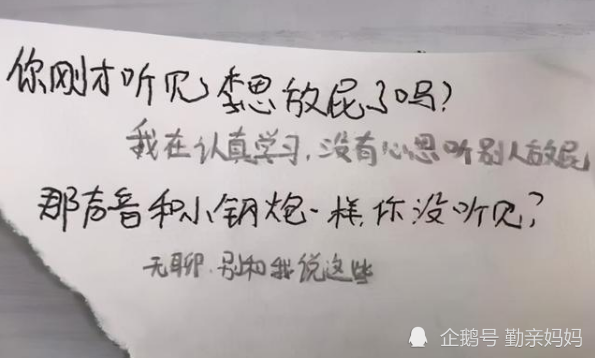 你刚才听见李思放屁了吗?
我在认真学习,没有心思听别人放屁
那声音和小钢炮一样,你没听见?
无聊,别和我说这些
企鹅号 勤亲妈妈